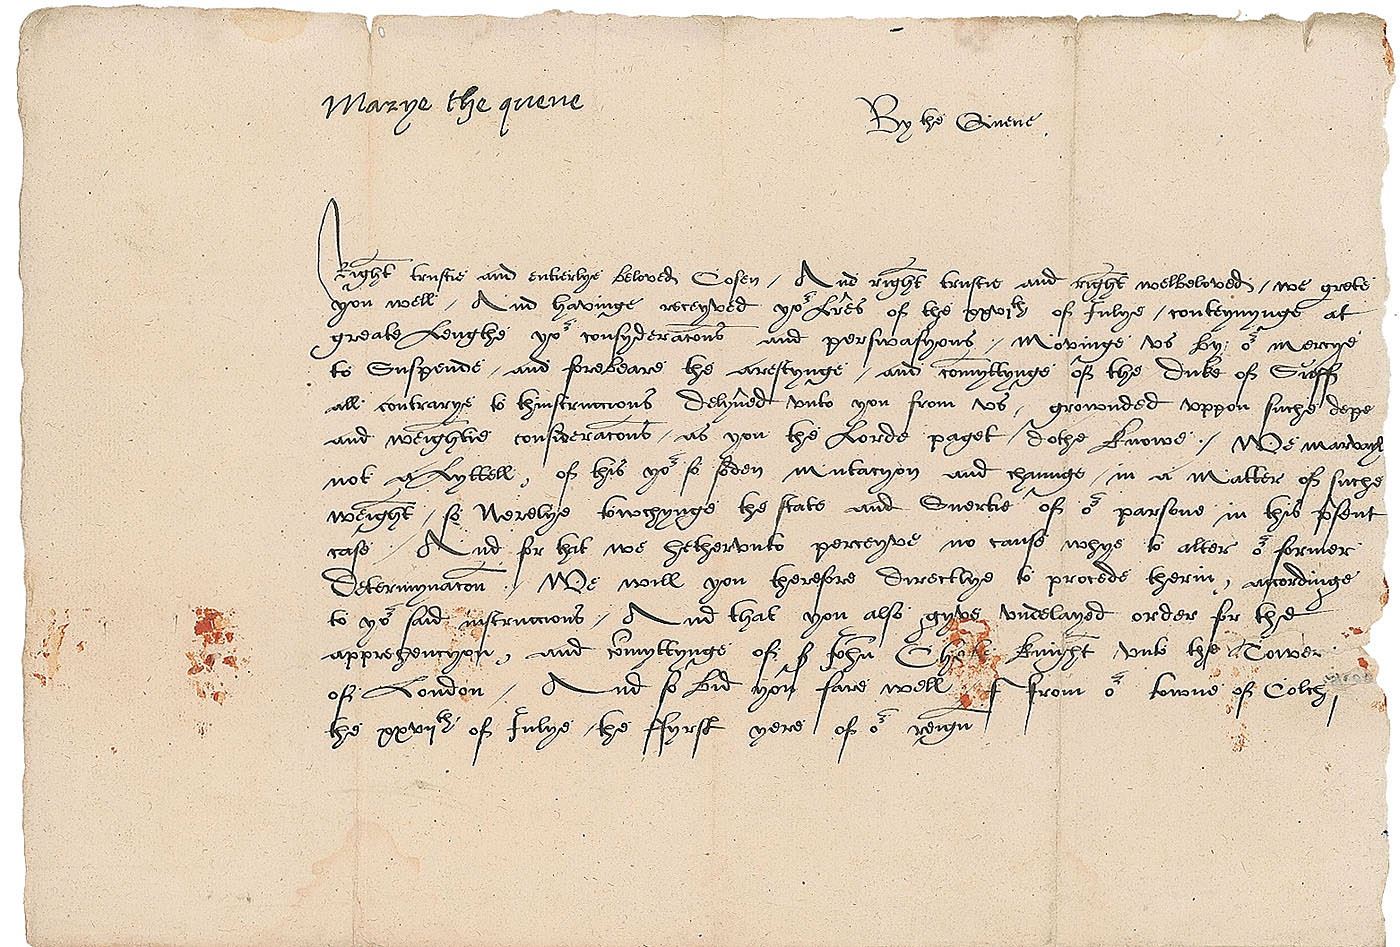 Marye the quene
By the Quene.
Right trustie and entierlye beloved Cosen / And right trustie and right welbeloved / we grete
you well / And havinge receyved yor Lres of the xxvith of Julye / conteynynge at
greate Lenghe yor consyderacons and perswasyons / Movinge us by or mercye
to Suspende / and forebeare the arestynge / and comyttynge of the Duke of Suff
all contrarye to thinstruccions Delyved unto you from us / grownded uppon suche depe
and weightie consideracons / as you the Lorde paget / dothe knowe / We marvayl
not a Lyttell, of this yor so soden Mutacyon and channge / in a Matter of suche
weight / so Nerelye towchynge the state and Suertie of or parsone in this psent
case / And for that we hetherunto perceyve no cause whye to alter or former
Determynacon / We will you therefore directlye to procede therin, accordinge
to yor said instruccions / And that you also gyve undelayed order for the
apprehencyon, and comyttynge of Sr John Cheke knight unto the Tower
of London / And so bid you fare well from or towne of Colch
the xxviith of Julye / the ffyrst yere of or reign